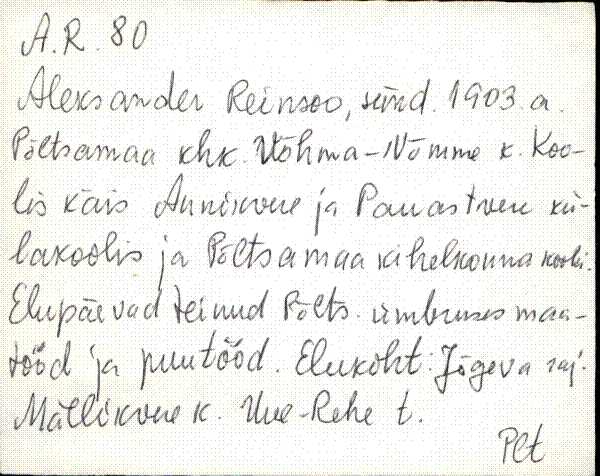 A.R. 80
Aleksander Reinsoo, sünd. 1903. a.
Põltsamaa khk. Võhma-Nõmme k. Koo-
lis käis Annikvere ja Pauastvere kü-
lakoolis ja Põltsamaa kihelkonna koolis.
Elupäevad teinud Põlts. ümbruses maa-
tööd ja puutööd. Elukoht: Jõgeva raj.
Mällikvere k. Uue-Rehe t.
Plt